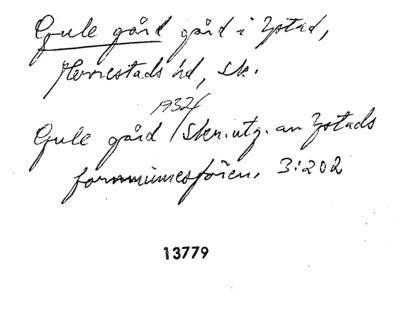 Gule gård gård i Ystad,
Herrestads hd, Sk.
1932
Gule gård / Skr. utg. av Ystads
fornminnesfören. 3:202
13779